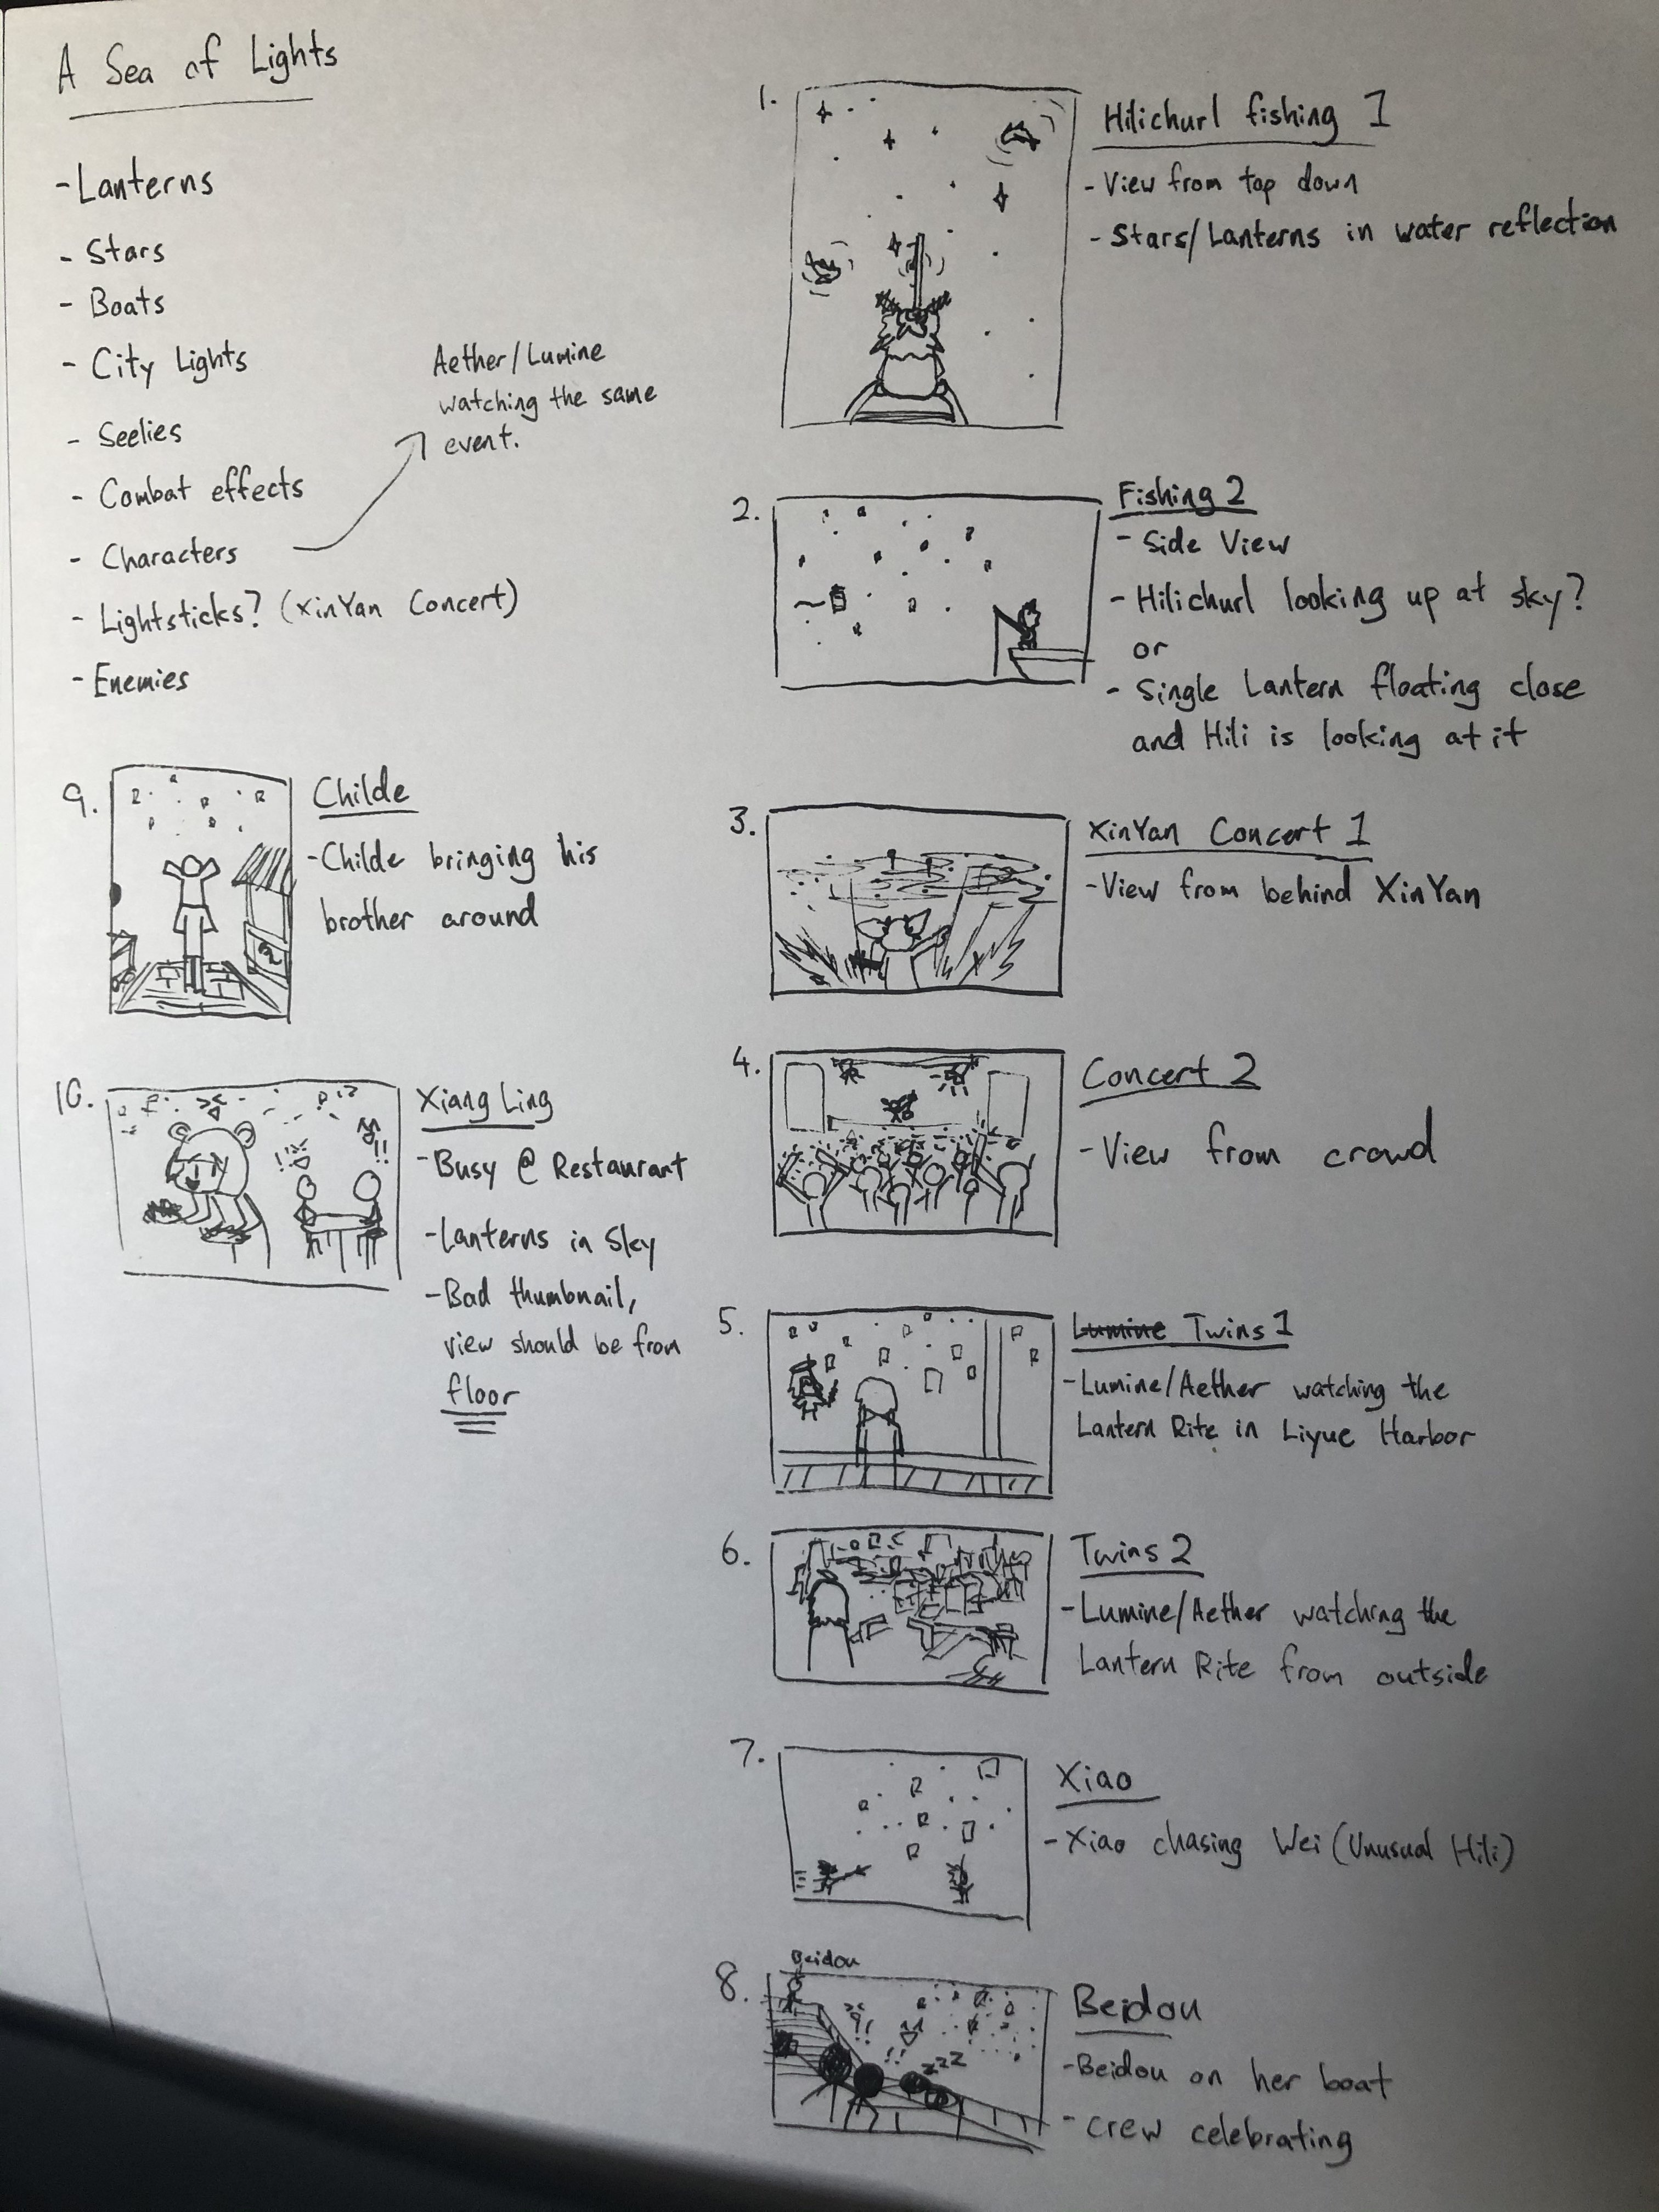 A Sea of Lights
- Lanterns
- Stars
- Boats
- City Lights
- Seelies
- Combat effects
- Characters
Aether/Lumine
watching the same
event.
- Lightsticks? (XinYan Concert)
- Enemies
1.
Hilichurl fishing 1
- View from top down
- Stars/Lanterns in water reflection
2.
Fishing 2
- Side View
- Hilichurl looking up at sky?
or
- Single Lantern floating close
and Hili is looking at it
3.
XinYan Concert 1
- View from behind XinYan
4.
Concert 2
- View from crowd
5.
Lumine Twins 1
- Lumine/Aether watching the
Lantern Rite in Liyue Harbor
6.
Twins 2
- Lumine/Aether watching the
Lantern Rite from outside
7.
Xiao
- Xiao chasing Wei (Unusual Hili)
8.
Beidou
!!
!!
zzz
Beidou
- Beidou on her boat
- Crew celebrating
9.
Childe
- Childe bringing his
brother around
10.
!
!!
Xiang Ling
- Busy @ Restaurant
- Lanterns in Sky
- Bad thumbnail,
view should be from
floor